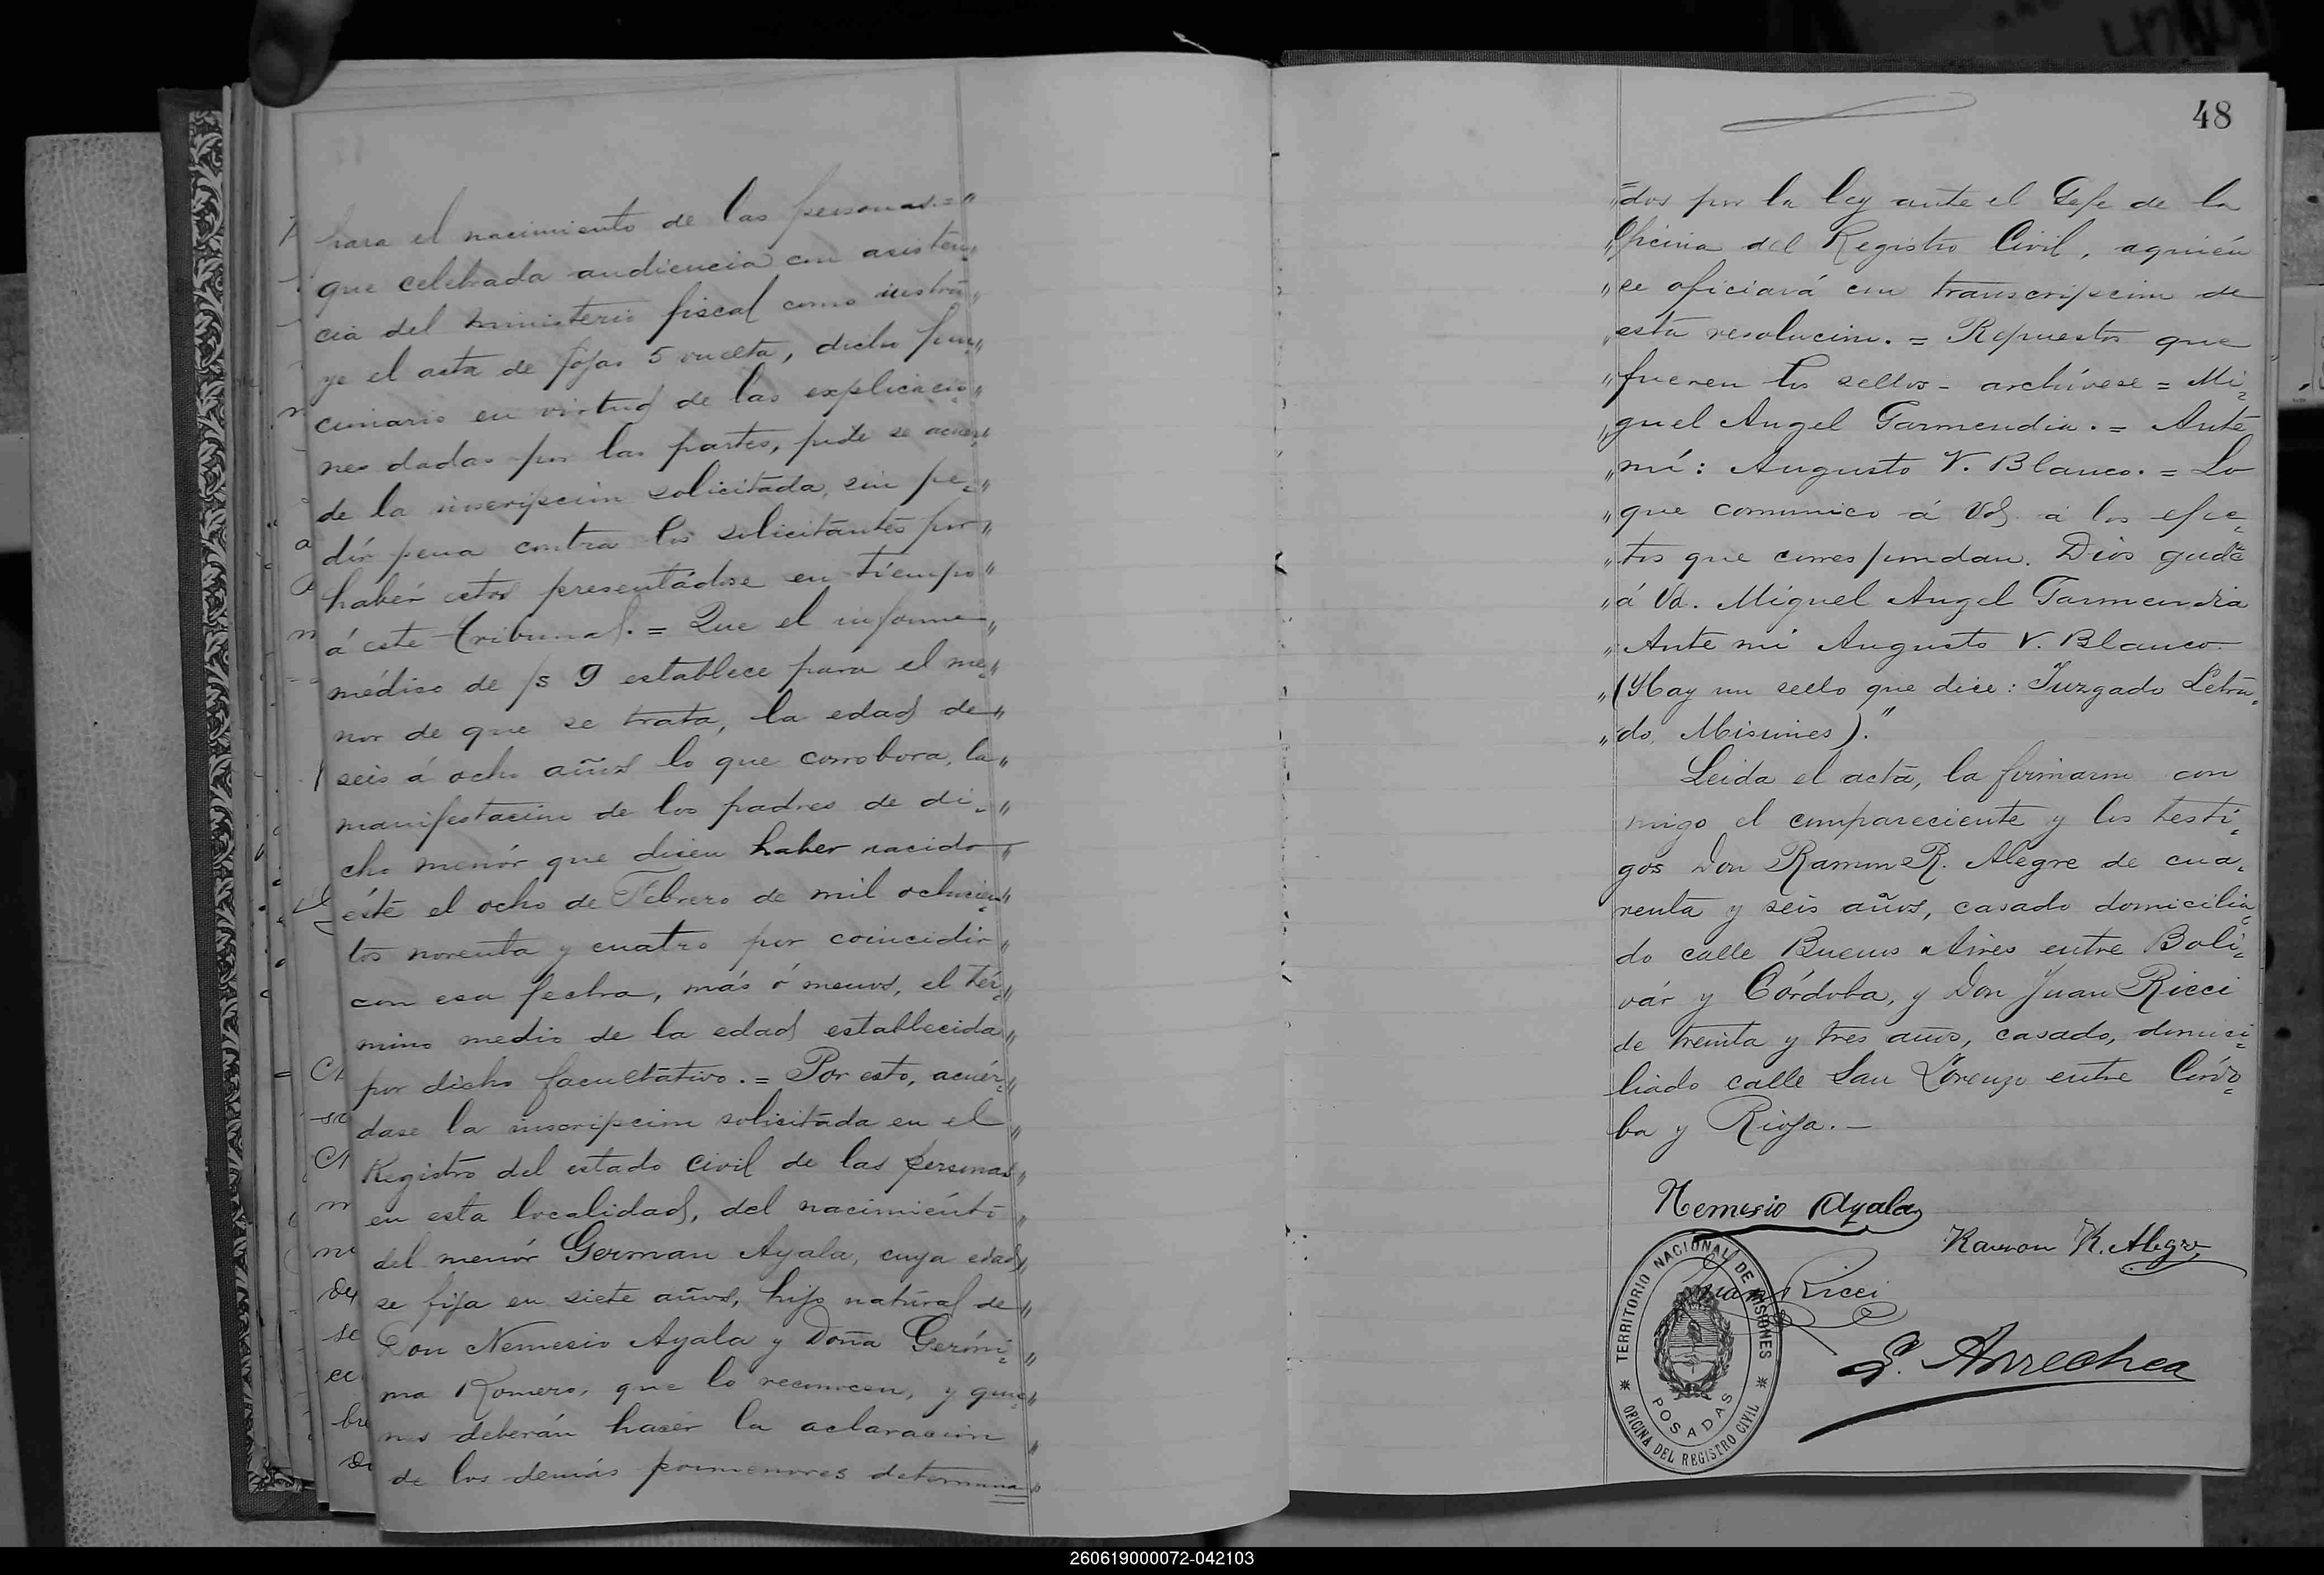 para el nacimiento de las personas.="
que celebrada audiencia con asisten"
cia del ministerio fiscal como instru"
ye el acta de fojas 5 vuelta, dicho fun"
cionario en virtud de las explicacio"
nes dadas por las partes, pide se acuer"
de la inscripcion solicitada, sin pe="
dir pena contra los solicitantes por"
habér estos presentádose en tiempo"
á este tribunal. = Que el informe"
médico de fs 9 establece para el me="
nor de que se trata, la edad de"
seis á ocho años lo que corrobora, la"
manifestacion de los padres de di="
cho menór que dicen haber nacido"
éste el ocho de Febrero de mil ochocien="
tos noventa y cuatro por coincidir"
con esa fecha, más ó menos, el tér="
mino medio de la edad establecida"
por dicho facultativo. = Por esto, acuér="
dase la inscripcion solicitada en el"
Registro del estado civil de las personas"
en esta localidad, del nacimiento"
del menór German Ayala, cuya edad"
se fija en siete años, hijo natural de"
Don Nemesio Ayala y Doña Geróni="
ma Romero, que lo reconocen, y quie="
nes deberán hacér la aclaracion"
de los demás pormenores determina"
48
"=dos por la ley ante el Gefe de la
"Oficina del Registro Civil, aquién
"se oficiará con transcripcion de
"esta resolucion. = Repuestos que
"fueren los sellos - archívese = Mi=
"guel Angel Garmendia. = Ante
"mí: Augusto V. Blanco. = Lo
"que comunico á Vd. á los efec=
"tos que correspondan. Dios gude
"á Vd. Miguel Angel Garmendia
"Ante mi Augusto V. Blanco.
"(Hay un sello que dice: Juzgado Letra=
"do, Misiones)."
Leida el acta, la firmaron con
migo el compareciente y los testi=
gos Don Ramon R. Alegre de cua=
renta y seis años, casado domicilia=
do calle Buenos Aires entre Bolí=
vár y Córdoba, y Don Juan Ricci
de treinta y tres años, casado, domici=
liado calle San Lorenzo entre Córdo=
ba y Rioja. —
Nemesio Ayala
Ramon R. Alegre
Juan Ricci
S. Arrechea
TERRITORIO NACIONAL DE MISIONES
POSADAS
OFICINA DEL REGISTRO CIVIL
260619000072-042103